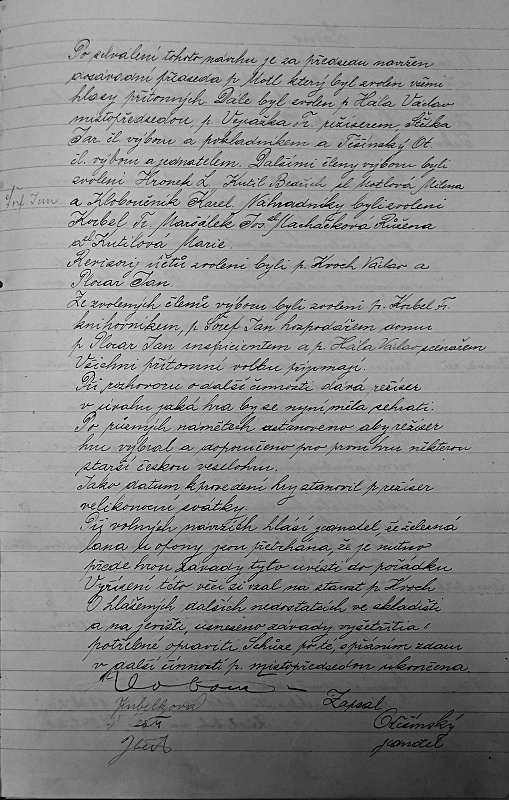 Po schválení tohoto návrhu je za předsedu navržen
dosavadní předseda p. Motl který byl zvolen všemi
hlasy přítomných. Dále byl zvolen p. Hála Václav
místopředsedou p. Vopažka Fr. režiserem, Stětka
Jar. čl. výboru a pokladníkem a Těšínský Ot.
čl. výboru a jednatelem. Dalšími členy výboru byli
zvoleni Hronek L. Kutil Bedřich sl. Motlová Milena
Šórf Jan
a Kloboučník Karel. Náhradníky byli zvoleni
Korbel Fr. Maršálek Jos. sl. Macháčková Růžena
a sl. Kutilova Marie.
Revisory účtů zvoleni byli p. Kroch Václav a
Plocar Jan.
Ze zvolených členů výboru byli zvoleni p. Korbel Fr.
knihovníkem, p. Šórf Jan hospodářem domu
p. Plocar Jan inspicientem a p. Hála Václav scénářem
Všichni přítomní volbu přijmají.
Při rozhovoru o další činnosti dává režiser
v úvahu jaká hra by se nyní měla sehrati.
Po různých námětech ustanoveno aby režiser
hru vybral a doporučeno pro první hru některou
starší českou veselohru.
Jako datum k provedení hry stanovil p. režiser
velikonoční svátky.
Při volných návrzích hlásí jednatel, že železná
lana u opony jsou přetrhána, že je nutno
přede hrou závady tyto uvésti do pořádku
Vyřízení této věci si vzal na starost p. Kroch
O hlášených dalších nedostatcích ve skladišti
a na jevišti, usneseno závady vyšetřiti a
potřebné opraviti. Schůze po té, s přáním zdaru
v další činnosti p. místopředsedou ukončena.
Zapsal
Kubelková
OTěšínský
jednatel